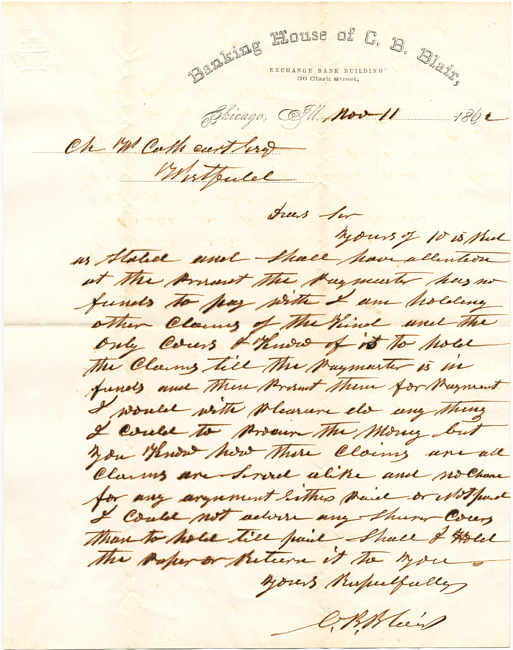 Banking House of C. B. Blair,
EXCHANGE BANK BUILDING
36 Clark Street,
Chicago, Ill. Nov 11 1862
Ch W Cathcart Esq
Westfield
Dear Sir
Yours of 10 is Recd
as Stated and shall have attention
at the Present the Paymaster has no
funds to pay with I am holding
other Claims of the Kind and the
only Cours I Know of is to hold
the Claims till the Paymaster is in
funds and then Present them for Payment
I would with Pleasure do any thing
I Could to Procure the Money but
You Know how these Claims are all
Claims are Served alike and no Chance
for any argument Either Paid or Not paid
I Could not advise any Cours
than to hold till paid Shall I Hold
the Paper or Return it to You
Yours Respectfully
C. B. Blair